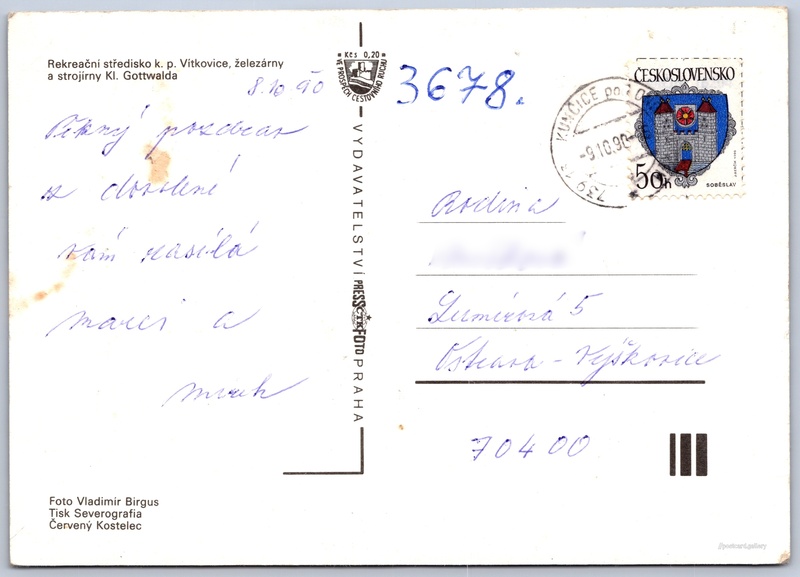 Rekreační středisko k. p. Vítkovice, železárny
a strojírny Kl. Gottwalda
8.10 90
Pěkný pozdrav
z dovolené
vám zasílá
a
Foto Vladimir Birgus
Tisk Severografia
Červený Kostelec
Kčs 0,20
VE PROSPĚCH CESTOVNÍHO RUCHU
VYDAVATELSTVÍ PRESSFOTO PRAHA
ČTK
3678.
KUNČICE pod O
-9.10.90-
739 13
ČESKOSLOVENSKO
50h
SOBĚSLAV
Rodina
Lumírová 5
Ostrava - Výškovice
70400
//postcard.gallery